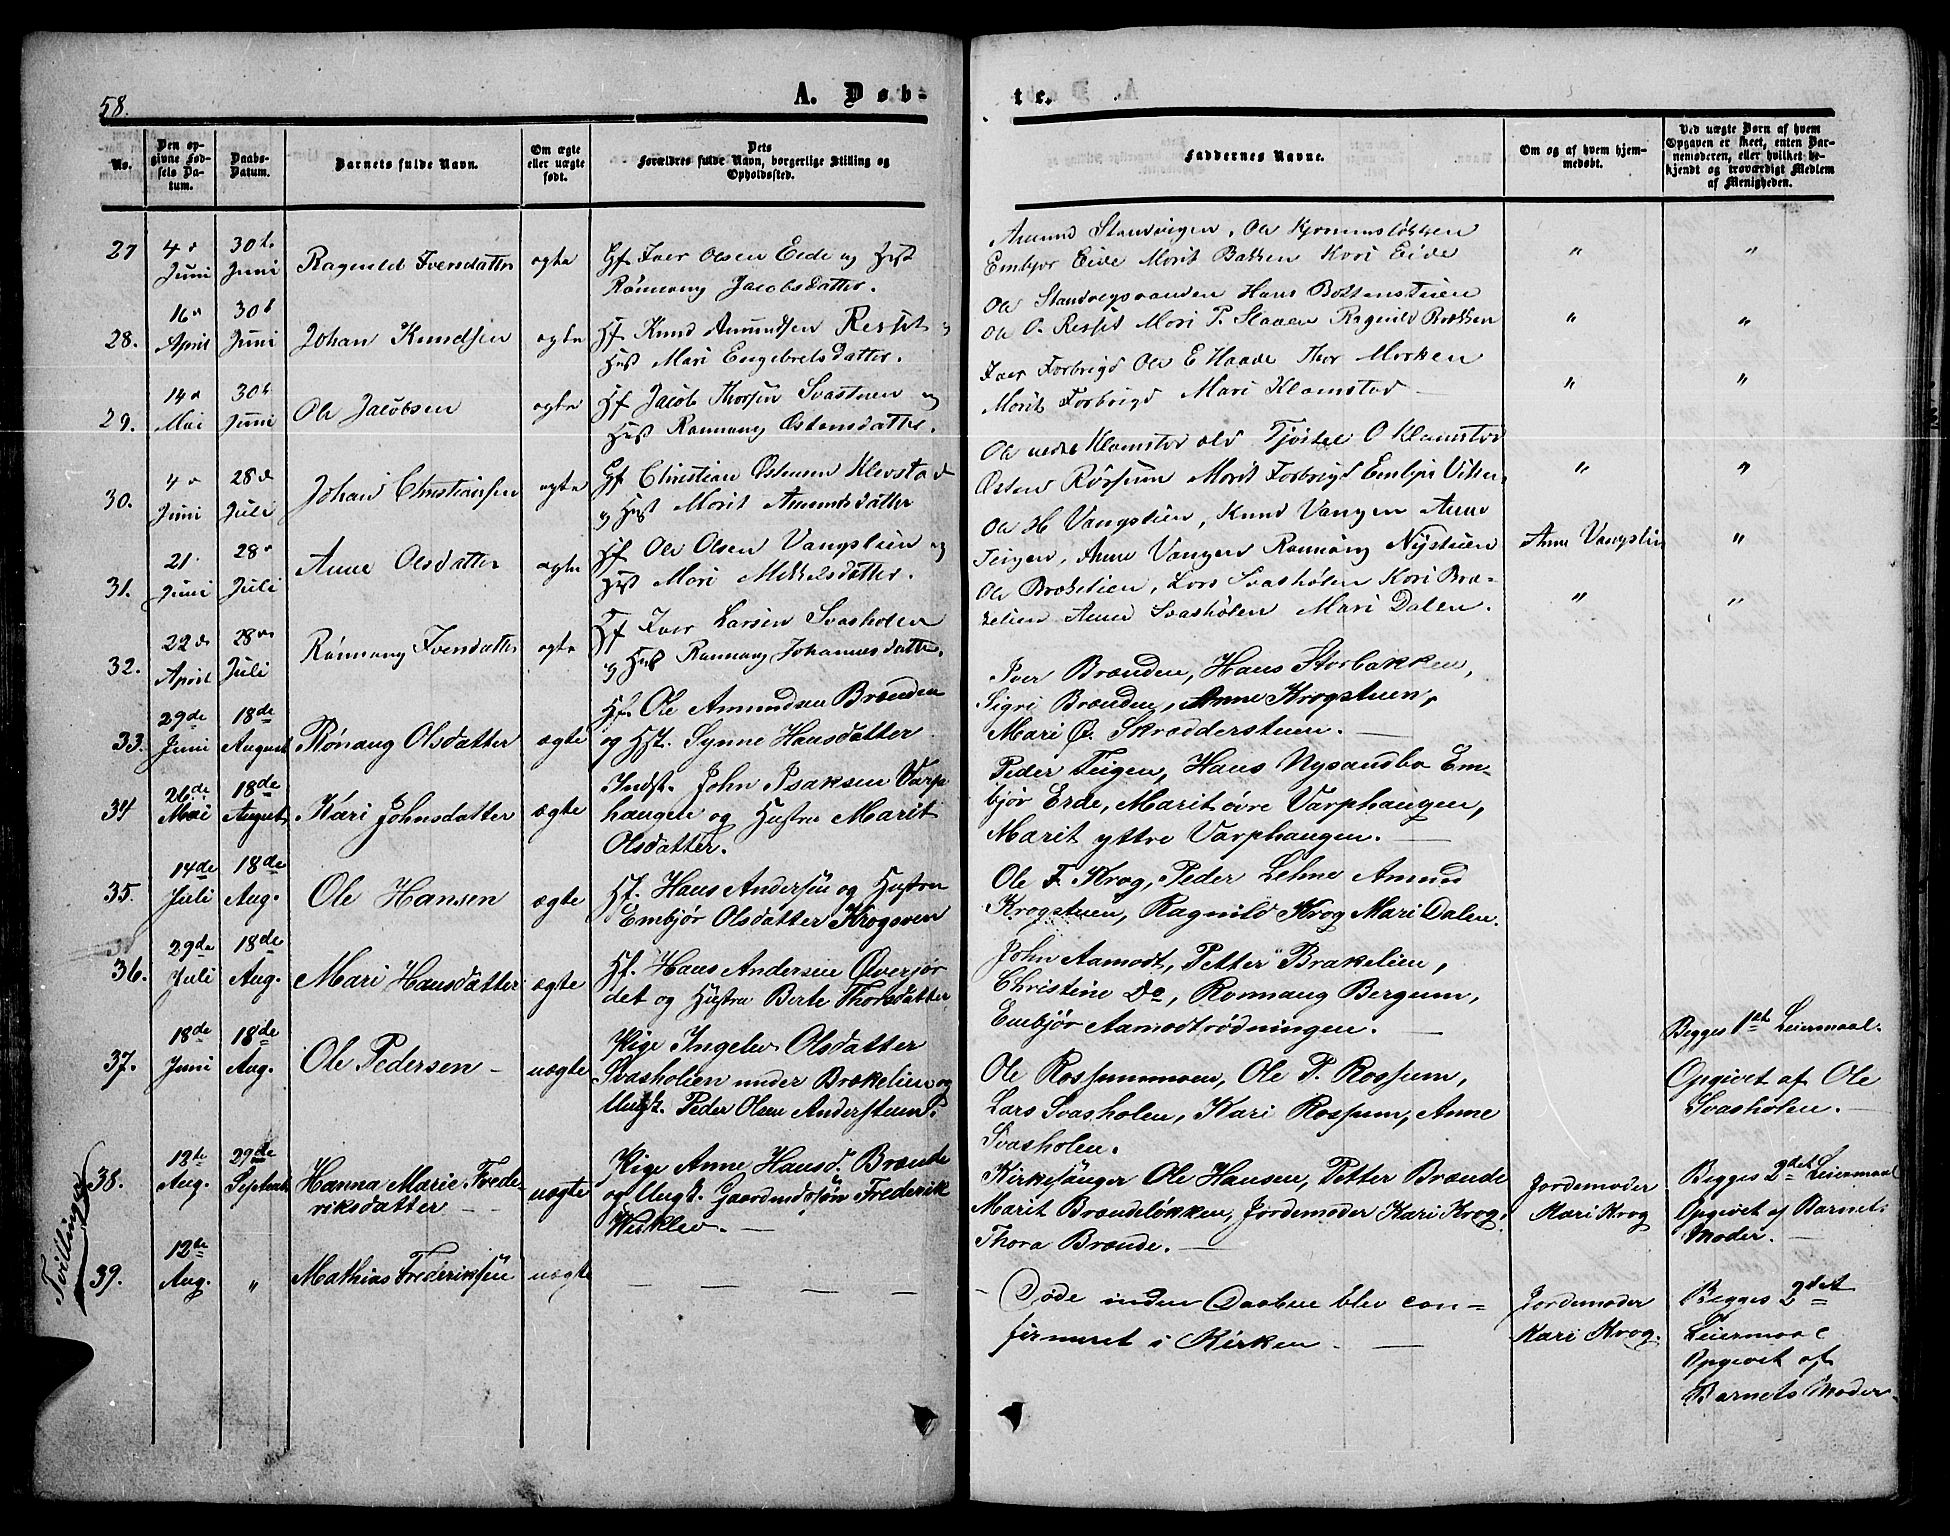 58.
A. Døb-
te.
No.
Den op-
givne Fød-
sels Da-
tum.
Daabs-
Datum.
Barnets fulde Navn.
Om ægte
eller uægte
født.
Dets
Forældres fulde Navn, borgerlige Stilling og
Opholdssted.
Faddernes Navne.
Om og af hvem hjem-
medøbt.
Ved uægte Børn af hvem
Opgaven er skeet, enten Bar-
nemoderen, eller hvilket be-
kjendt og troværdigt Medlem
af Menigheden.
27 4 Juni 30 Juni Ragnild Iversdatter ægte Gf Iver Olsen Eide og Hust
Rønnaug Jacobsdatter.
Amund Strandvigen, Ole
Embjør Eide Marit Bakken Kari Eide " "
28. 16 April 30 Juni Johan Knudsen ægte Hf Knud Amundsen Resset og
Hust Mari Engebretsdatter.
Ole Hans
Ole O. Resset Mari P. Staaen Ragnild Bakken " "
29. 14 Mai 30 Juni Ole Jacobsen ægte Hf Jacob Thorsen Svastuen og
Hust Rønnaug Østensdatter.
Iver Forbrigd Ole E Haade Thor Morken
Marit Forbrigd Mari Klomstad " "
30. 4 Juni 28 Juli Johan Christiansen ægte Gf Christian Klevstad
og Hust Marit Amundsdatter
Ole nedre Klomstad Tjøstel O Klomstad
Østen Røssum Marit Forbrigd Embjør " "
31. 21 Juni 28 Juli Anne Olsdatter ægte Hf Ole Olsen Vangslien og
Hust Mari Mikkelsdatter.
Ole H Vangslien, Knud Vangen Anne
Teigen, Anne Vangen Rønnaug Nystuen Anne Vangslien "
32. 22de April 28de Juli Rønnaug Iversdatter ægte Hf Iver Larsen Svasholen
og Hust Rønnaug Johannesdatter.
Ole Brækelien, Lars Svasholen Kari Bræ-
kelien Anne Svasholen Mari Dalen. " "
33. 29de Juni 18de August Rønaug Olsdatter ægte Hf. Ole Amundsen Brænden
og Hst. Synne Hansdatter
Iver Brænden, Hans Storbakken,
Sigri Brænden, Anne Krogstuen,
Mari Ø. Skrædderstuen. —
34 26de Mai 18de August Kari Johnsdatter ægte Indst. John Isaksen Varp
haugen og Hustru Marit
Olsdatter.
Peder Teigen, Hans Nysandbo Em-
björ Erde, Marit övre Varphaugen,
Marit yttre Varphaugen. —
35. 14de Juli 18de Aug. Ole Hansen ægte Hf. Hans Andersen og Hustru
Embjør Olsdatter Krogsveen
Ole F. Krog, Peder Lehne Amund
Krogstuen, Ragnild Krog Mari Dalen.
36. 29de Juli 18de Aug. Mari Hansdatter ægte Hf. Hans Andersen Øverjor
det og Hustru Berte Thorsdatter
John Aamodt, Petter Brækelien,
Christine Do, Rønnaug Bergum,
Embjør Aamodtrødningen. —
37. 18de Juni 18de Aug. Ole Pedersen — uægte Pige Ingelev Olsdatter
Svasholien under Brækelien og
Ungk. Peder Olsen Anderstuen.
Ole Rossummoen, Ole P. Rossum,
Lars Svasholen, Kari Rossum, Anne
Svasholen.
Begges 1ste Leiermaal.
Opgivet af Ole
Svasholen. —
Tvillinger
38. 12te Aug. 29de Septemb. Hanna Marie Frede-
riksdatter — — uægte Pige Anne Hansd. Brænde
og Ungk. Gaardmdssøn Frederik
Wisklev. —
Kirkesanger Ole Hansen, Petter Brænde
Marit Brændeløkken, Jordemoder Kari Krog,
Thora Brænde. —
Jordemoder
Kari Krog
Begges 2det Leiermaal
Opgivet af Barnets
Moder. —
39. 12te Aug. " Mathias Frederiksen uægte — — — —
— Døde inden Daaben blev con=
firmeret i Kirken. —
Jordemoder
Kari Krog.
Begges 2det
Leiermaal
Opgivet af
Barnets Moder.